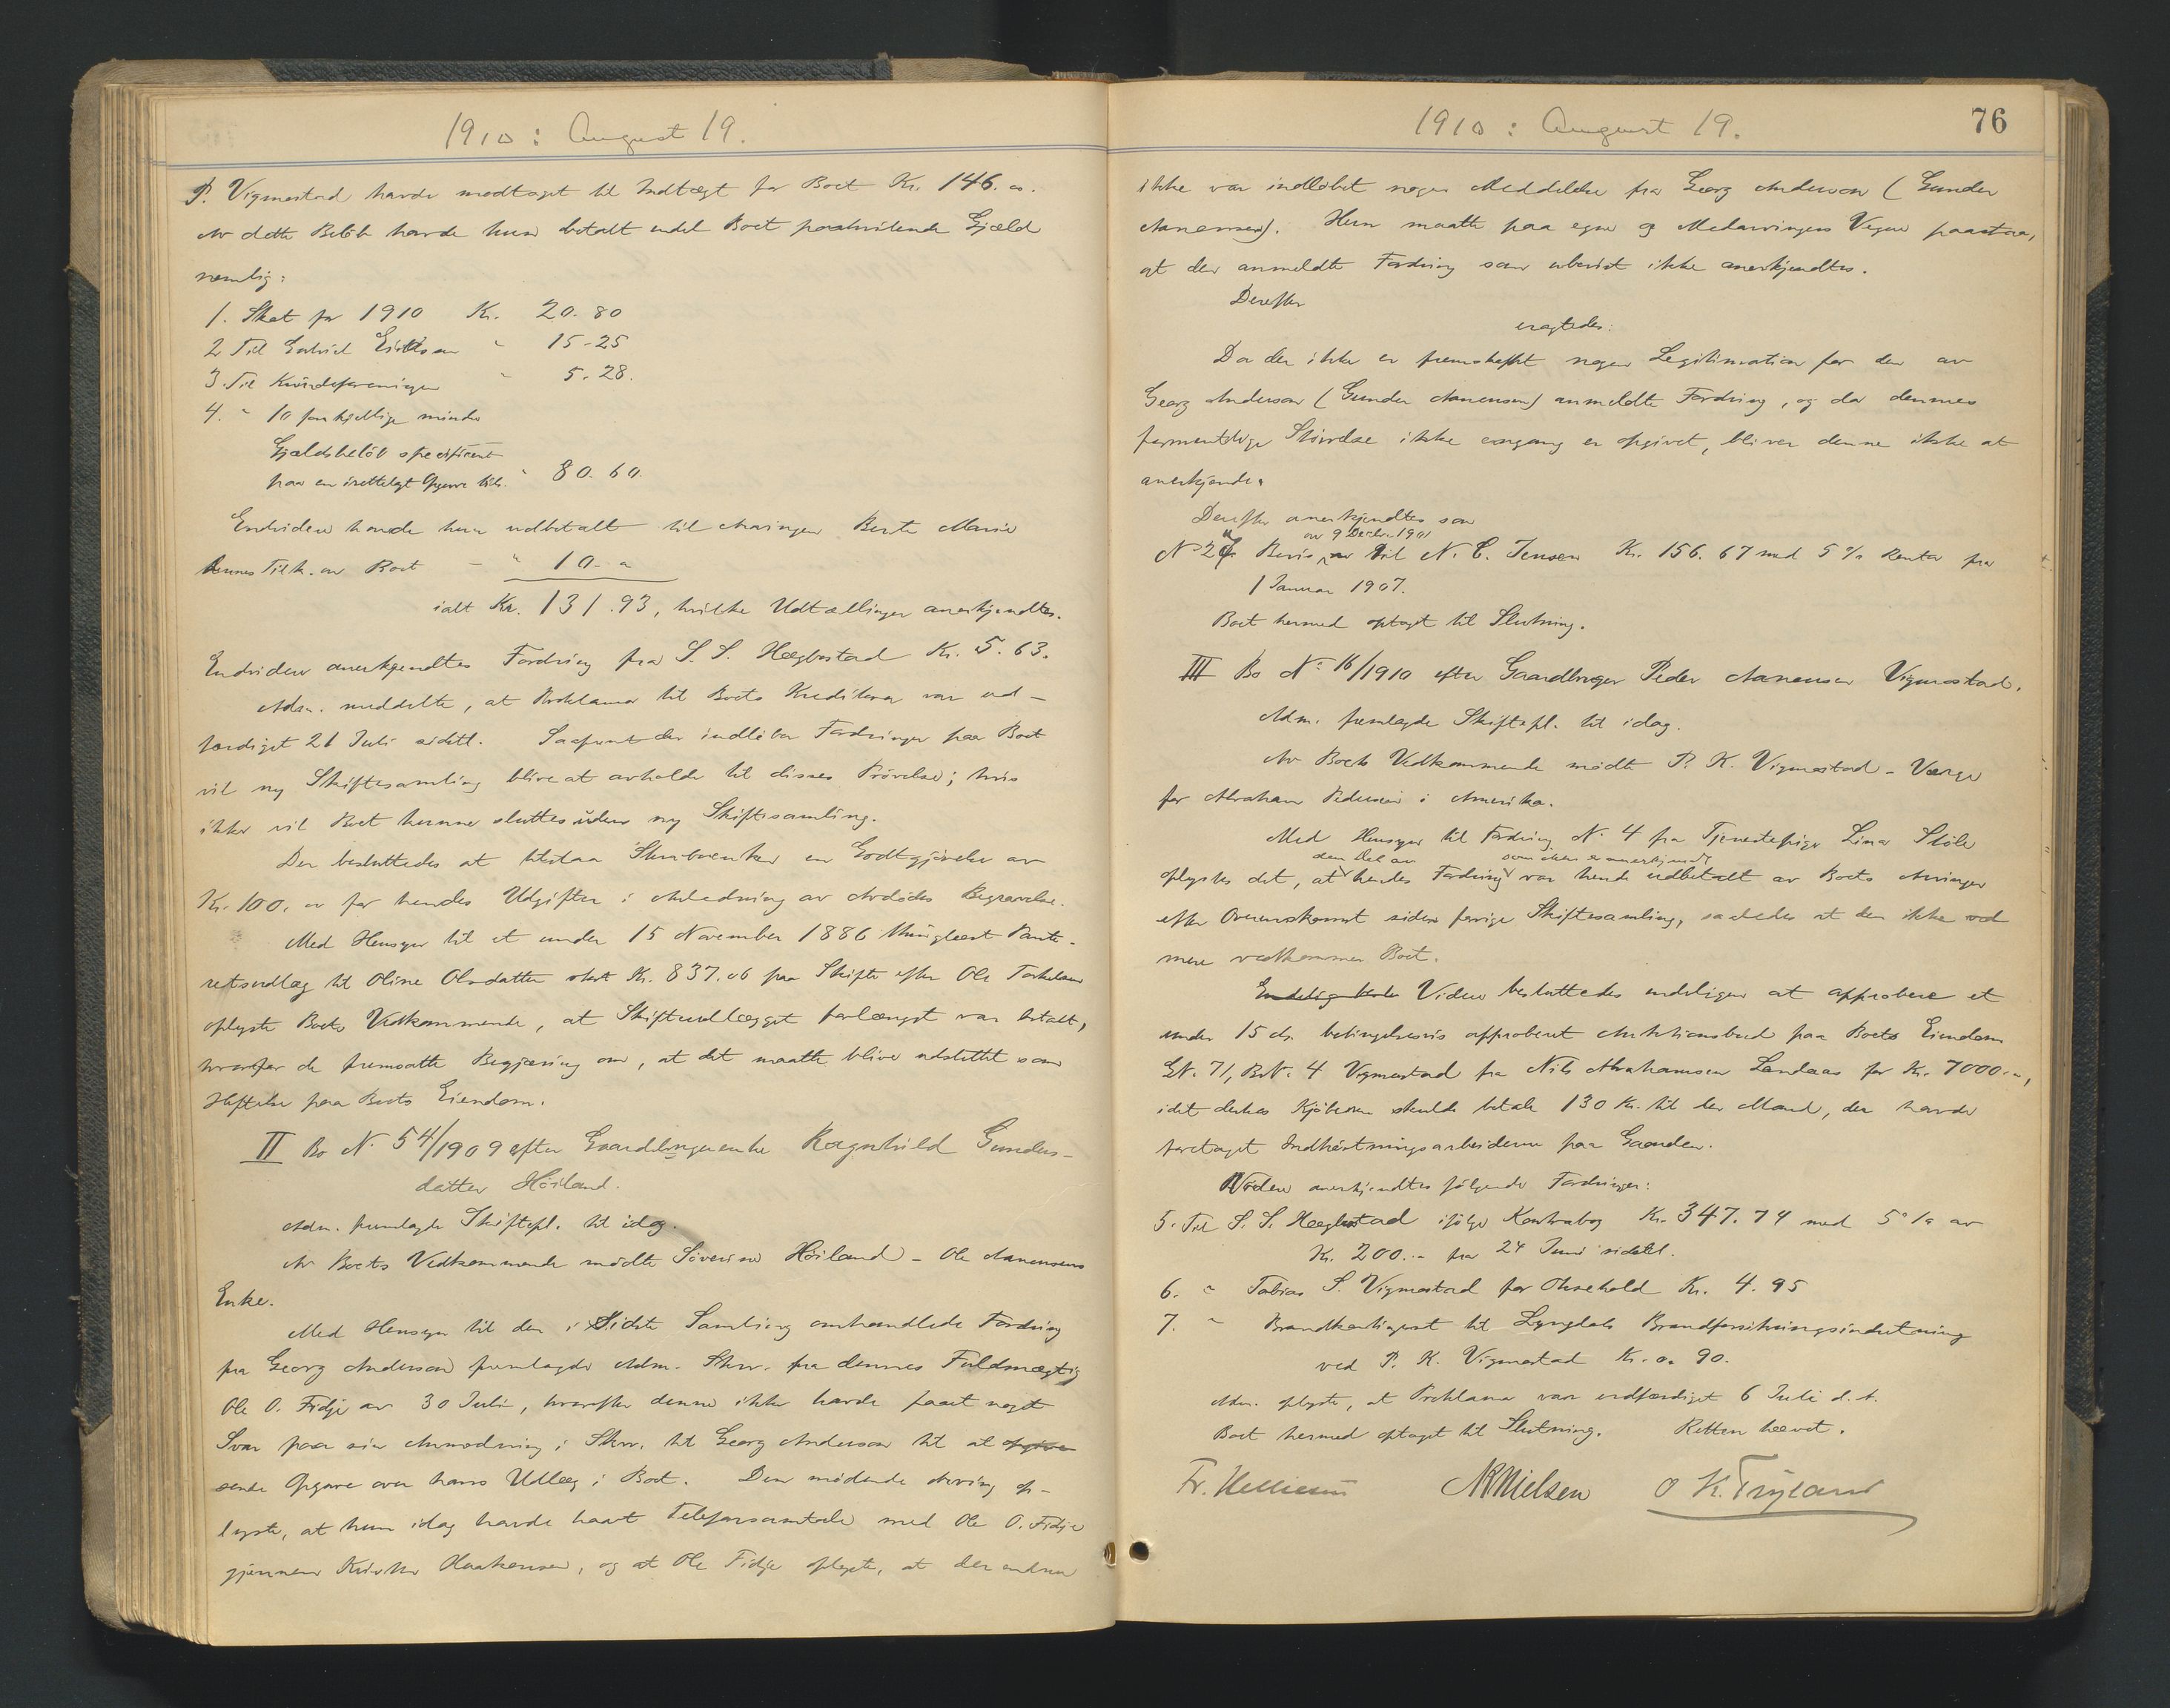 1910: August 19.
P. Vigmostad havde modtaget til Indtægt for Boet Kr. 146. 00.
Av dette Beløb havde hun betalt endel Boet paahvilende Gjæld
nemlig:
1. Skat for 1910 Kr. 20. 80
2 Til Gabriel " 15-25
3. Til Kvindeforeningen " 5. 28.
4. " 10 forskjellige mindre
Gjældsbeløb specificeret
paa en irettelagt Opgave tils. " 80. 60.
Endvidere havde hun udbetalt til Arvingen Berte Marie
hennes Tilh. av Boet - " 10. "
ialt Kr. 131.93, hvilke Udtællinger anerkjendtes.
Endvidere anerkjendtes Fordring fra S. S. Hægbostad Kr. 5. 63.
Adm. meddelte, at Proklama til Boets Kreditorer var ud-
færdiget 21 Juli sidstl. Saafremt der indløber Fordringer paa Boet
vil ny Skiftesamling blive at avholde til disses Prøvelse; hvis
ikke vil Boet kunne sluttes uden ny Skiftesamling.
Der besluttedes at tilstaa Skrivenken en Godtgjørelse av
Kr. 100. 00 for hendes Udgifter i Anledning av Avdødes Begravelse.
Med Hensyn til et under 15 November 1886 thinglæst Pante-
retsudlæg til Oline Olsdatter stort Kr. 837. 06 paa Skifte efter Ole Torkelsen
oplyste Boets Vedkommende, at Skifteudlægget forlængst var betalt,
hvorfor de fremsatte Begjæring om, at det maatte blive udslettet som
Heftelse paa Boets Eiendom.
II Bo N. 54/1909 efter Gaardbrugerenke Ragnhild Gunders-
datter Høiland.
Adm. fremlagde Skiftepl. til idag.
Av Boets Vedkommende mødte Søverine Høiland - Ole Aanensens
Enke.
Med Hensyn til den i Sidste Samling omhandlede Fordring
fra Georg Anderson fremlagde Adm. Skr. fra dennes Fuldmægtig
Ole O. Fidje av 30 Juli, hvorefter denne ikke havde faaet noget
Svar paa sin Anmodning i Skr. til Georg Anderson til at opgive
sende Opgave over hans Udlæg i Boet. Den mødende Arving op-
lyste, at hun idag havde havt Telefonsamtale med Ole O. Fidje
gjennem Haakensen, og at Ole Fidje oplyste, at der endnu
1910: August 19.
76
ikke var indløbet nogen Meddelelse fra Georg Anderson (Gunder
Aanensen). Hun maatte paa egne og Medarvingers Vegne paastaa,
at den anmeldte Fordring som ubevist ikke anerkjendtes.
Derefter
eragtedes:
Da der ikke er fremskaffet nogen Legitimation for den av
Georg Anderson (Gunder Aanensen) anmeldte Fordring, og da dennes
formentlige Størrelse ikke engang er opgivet, bliver denne ikke at
anerkjende.
Derefter anerkjendtes som
av 9 Decbr. 1901
N. 27. Bevis til N. C. Jensen Kr. 156. 67 med 5 % Renter fra
1 Januar 1907.
Boet hermed optaget til Slutning.
III Bo N: 16/1910 efter Gaardbruger Peder Aanensen Vigmostad.
Adm. fremlagde Skiftepl. til idag.
Av Boets Vedkommende mødte P. K. Vigmostad - Værge
for Abraham Pedersen i Amerika.
Med Hensyn til Fordring N. 4 fra Tjenestepige Lina Støle
den Del av som ikke er anerkjendt
oplystes det, at hendes Fordring var hende udbetalt av Boets Arvinger
efter Overenskomst siden forrige Skiftesamling, saaledes at den ikke ved
mere vedkommer Boet.
Endelig Videre besluttedes endeligen at approbere et
under 15 ds. betingelsesvis approberet Auktionsbud paa Boets Eiendom
GN. 71, BN. 4 Vigmostad fra Nils Abrahamsen Landaas for Kr. 7000. 00,
idet desuden Kjøberen skulde betale 130 Kr. til den Mand, der havde
foretaget Indhøstningsarbeiderne paa Gaarden.
Videre anerkjendtes følgende Fordringer:
5. Til S. S. Hægbostad ifølge Kontrabog Kr. 347. 74 med 5 % av
Kr. 200. " fra 24 Juni sidstl.
6. " Tobias S. Vigmostad for Oksehold Kr. 4. 95
7. " Brandkontingent til Lyngdals Brandforsikringsindretning
ved P. K. Vigmostad Kr. 0. 90.
Adm. oplyste, at Proklama var udfærdiget 6 Juli d. A.
Boet hermed optaget til Slutning. Retten hævet.
Fr. NKNielsen O K. Trysland